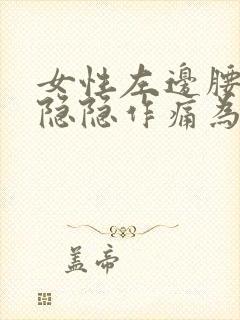 女性左邊腰
隐隐作痛為
盖帝